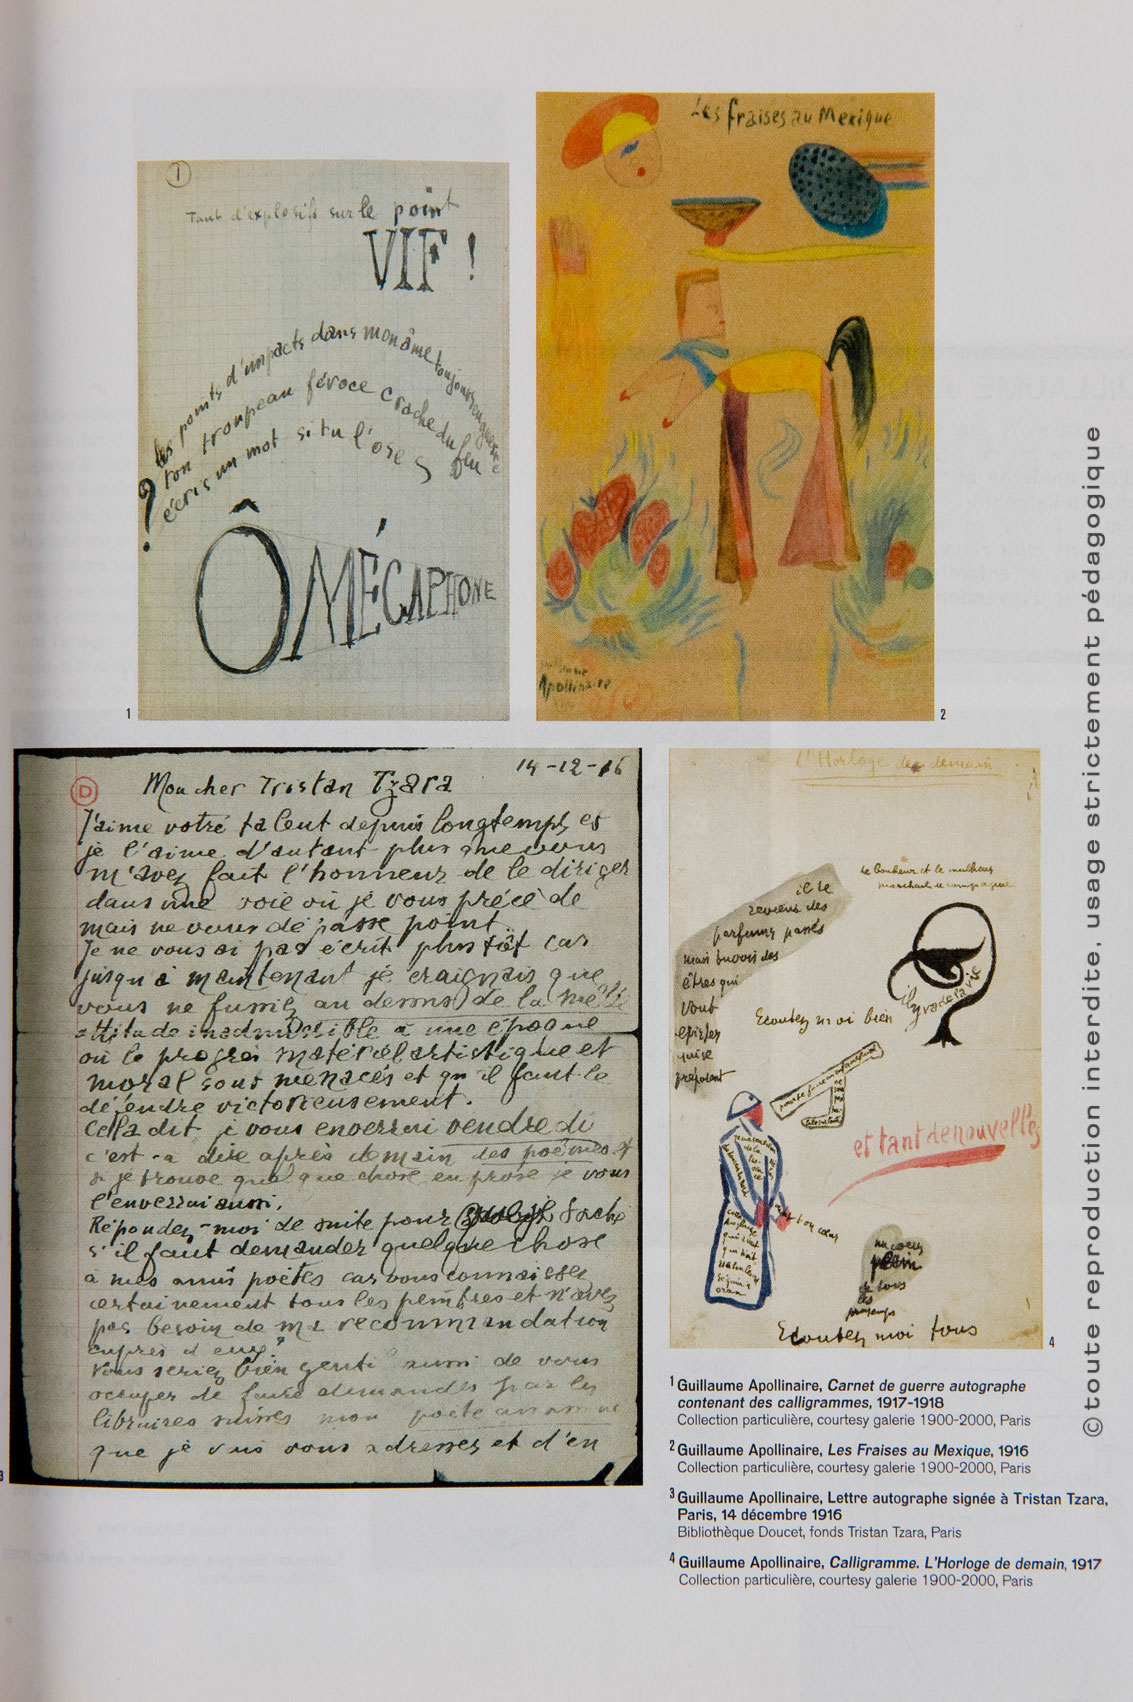 1
Tant d'explosifs sur le point
VIF !
les points d'impacts dans mon âme toujours en guerre
ton troupeau féroce crache du feu
écris un mot si tu l'oses
?
Ô MÉGAPHONE
1
Les fraises au Mexique
Apollinaire
2
D
14-12-16
Mon cher Tristan Tzara
J'aime votre talent depuis longtemps et
je l'aime d'autant plus que vous
m'avez fait l'honneur de le diriger
dans une voie où je vous précède
mais ne vous dépasse point.
Je ne vous ai pas écrit plus tôt car
jusqu'à maintenant je craignais que
vous ne fussiez au dessus de la mêlée
attitude inadmissible à une époque
où le progrès matériel artistique et
moral sont menacés et qu'il faut le
défendre victorieusement.
Cela dit je vous enverrai vendredi
c'est-à dire après demain des poèmes et
si je trouve quelque chose en prose je vous
l'enverrai aussi.
Répondez-moi de suite pour
s'il faut demander quelque chose
à mes amis poètes car vous connaissez
certainement tous les peintres et n'avez
pas besoin de ma recommandation
auprès d'eux.
Vous seriez bien gentil aussi de vous
occuper de faire demander par les
libraires suisses mon poète assassiné
que je vais vous adresser et d'en
3
L'Horloge de demain
Le bonheur et le malheur
marchent de compagnie
il se
reviens des
parfums passés
mais
êtres qui
vont
Ecoutez moi bien
il y va de la vie
et tant de nouvelles
mon cœur
de tous
les
printemps
Ecoutez moi tous
4
1 Guillaume Apollinaire, Carnet de guerre autographe
contenant des calligrammes, 1917-1918
Collection particulière, courtesy galerie 1900-2000, Paris
2 Guillaume Apollinaire, Les Fraises au Mexique, 1916
Collection particulière, courtesy galerie 1900-2000, Paris
3 Guillaume Apollinaire, Lettre autographe signée à Tristan Tzara,
Paris, 14 décembre 1916
Bibliothèque Doucet, fonds Tristan Tzara, Paris
4 Guillaume Apollinaire, Calligramme. L'Horloge de demain, 1917
Collection particulière, courtesy galerie 1900-2000, Paris
© toute reproduction interdite, usage strictement pédagogique